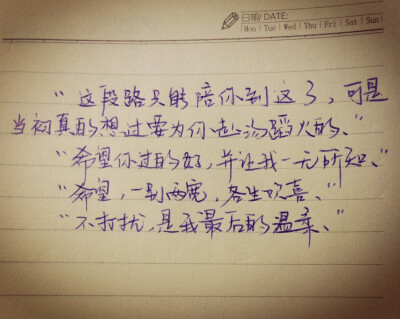 日期/DATE:
Mon | Tue | Wed | Thu | Fri | Sat | Sun
“这段路只能陪你到这了,可是
当初真的想过要为你赴汤蹈火的、”
“希望你过的好,并让我一无所知、”
“希望,一别两宽,各生欢喜、”
“不打扰,是我最后的温柔、”